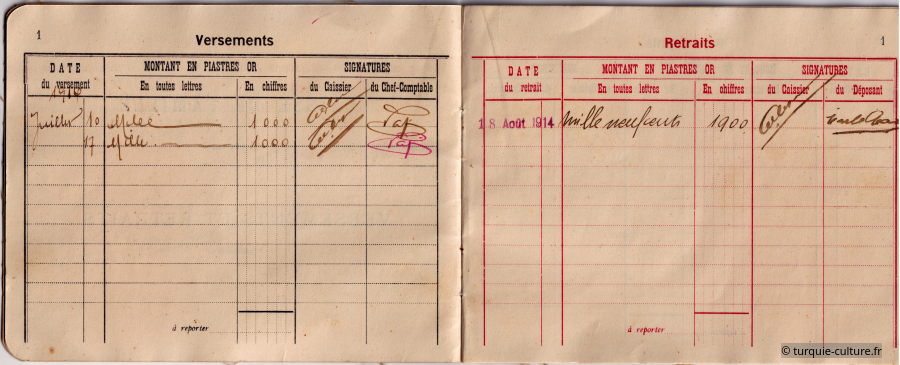 1
Versements
DATE
du versement
MONTANT EN PIASTRES OR
En toutes lettres
En chiffres
SIGNATURES
du Caissier
du Chef-Comptable
Juillet 10 Mille 1000
17 Mille 1.000
à reporter
1
Retraits
DATE
du retrait
MONTANT EN PIASTRES OR
En toutes lettres
En chiffres
SIGNATURES
du Caissier
du Déposant
18 Août 1914 Mille neuf cents 1900
à reporter
© turquie-culture.fr